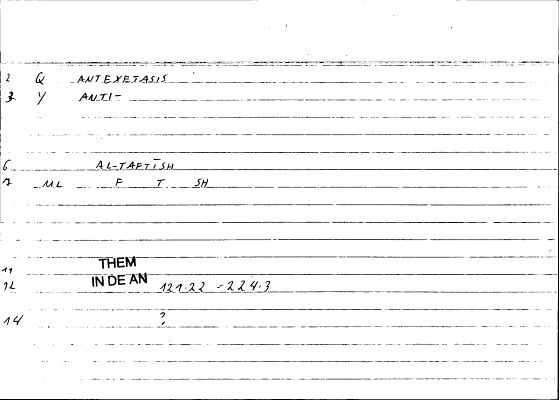 2 Q ANTEXETASIS
3 Y ANTI-
6 AL-TAFTĪSH
7 ML F T SH
11 THEM
12 IN DE AN 121.22 - 224.3
14 ?